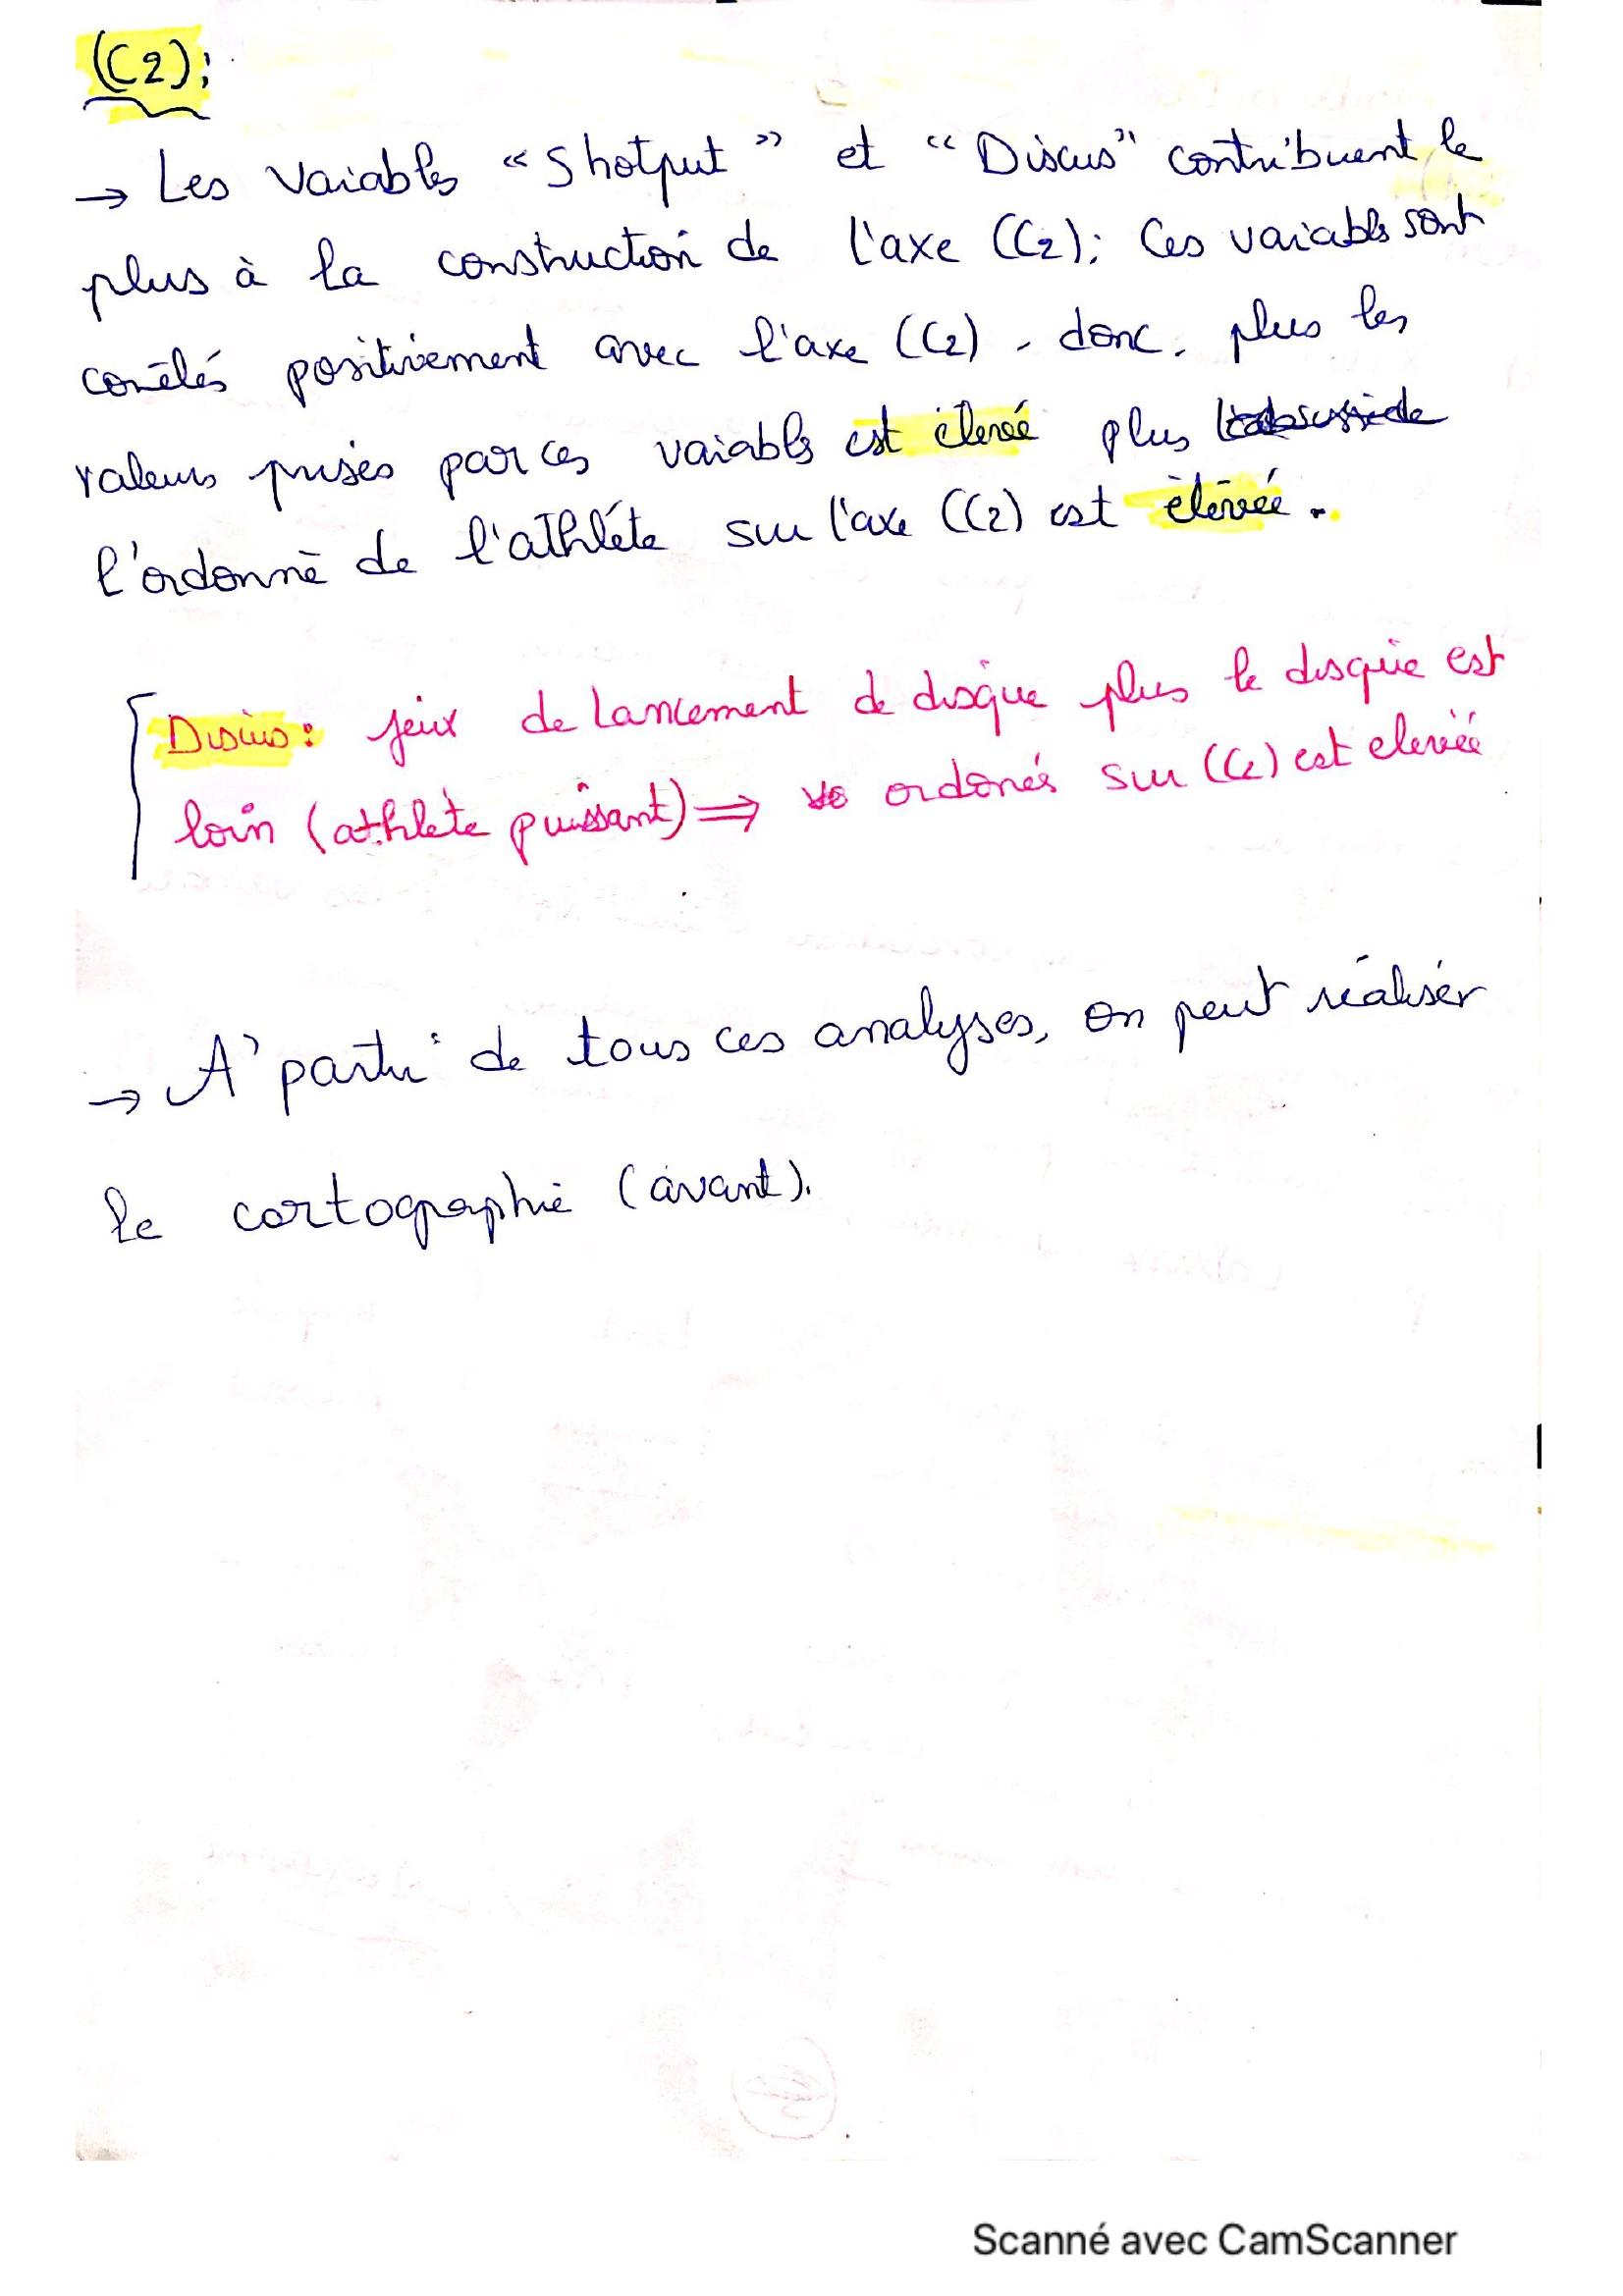 (C2):
→ Les variables "Shotput" et "Discus" contribuent le
plus à la construction de l'axe (C2); Ces variables sont
corrélés positivement avec l'axe (C2), donc, plus les
valeurs prises par ces variables est élevé plus
l'ordonné de l'athléte sur l'axe (C2) est élevée.
Discus: jeux de Lancement de disque plus le disque est
loin (athlète puissant) ⇒ ordonés sur (C2) est elevée
→ A partir de tous ces analyses, on peut réaliser
le cartographie (avant).
Scanné avec CamScanner